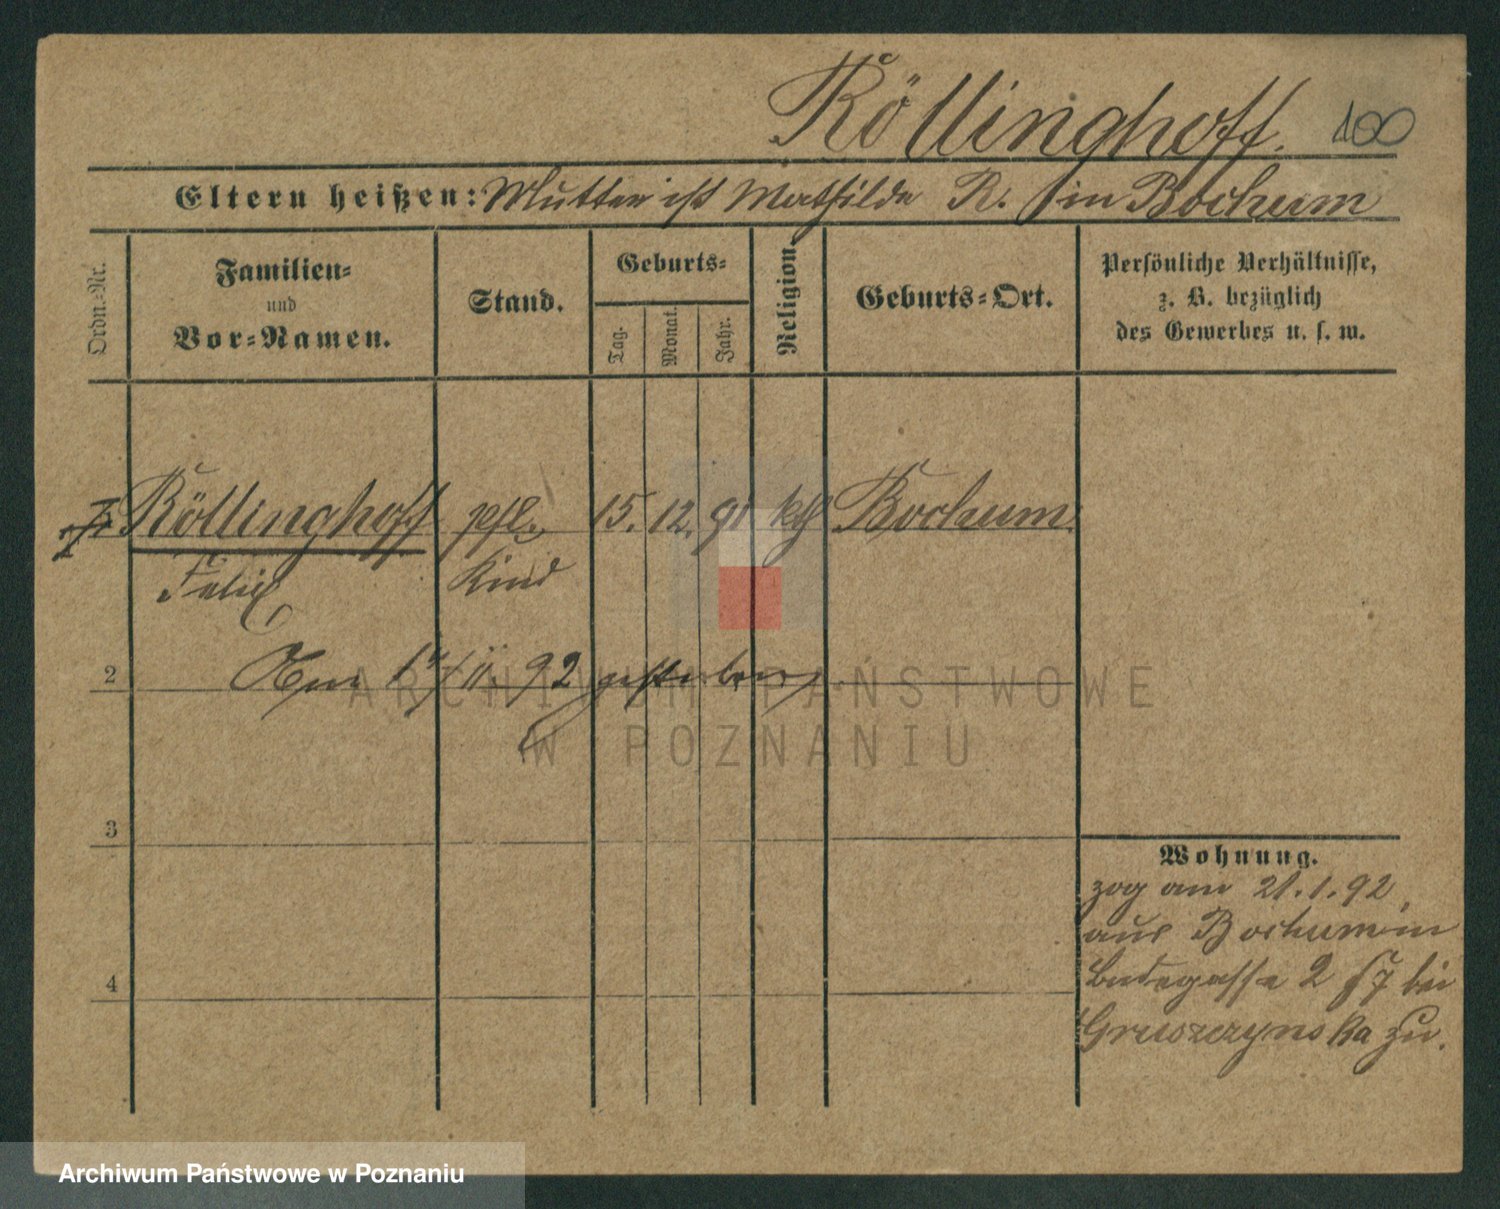 Röllinghoff. 100
Eltern heißen: Mutter ist Mathilde R. in Bochum
Ordn.-Nr.
Familien-
und
Vor-Namen.
Stand.
Geburts-
Tag.
Monat.
Jahr.
Religion.
Geburts-Ort.
Persönliche Verhältnisse,
z. B. bezüglich
des Gewerbes u. s. w.
Röllinghoff pfl. 15. 12. 91 kth Bochum.
Felix Kind
2
Am 17/II. 92 gestorben
3
4
Wohnung.
zog am 21.1.92
aus Bochum in
2 bei
Gruszczynska zu.
ARCHIWUM PAŃSTWOWE
W POZNANIU
Archiwum Państwowe w Poznaniu